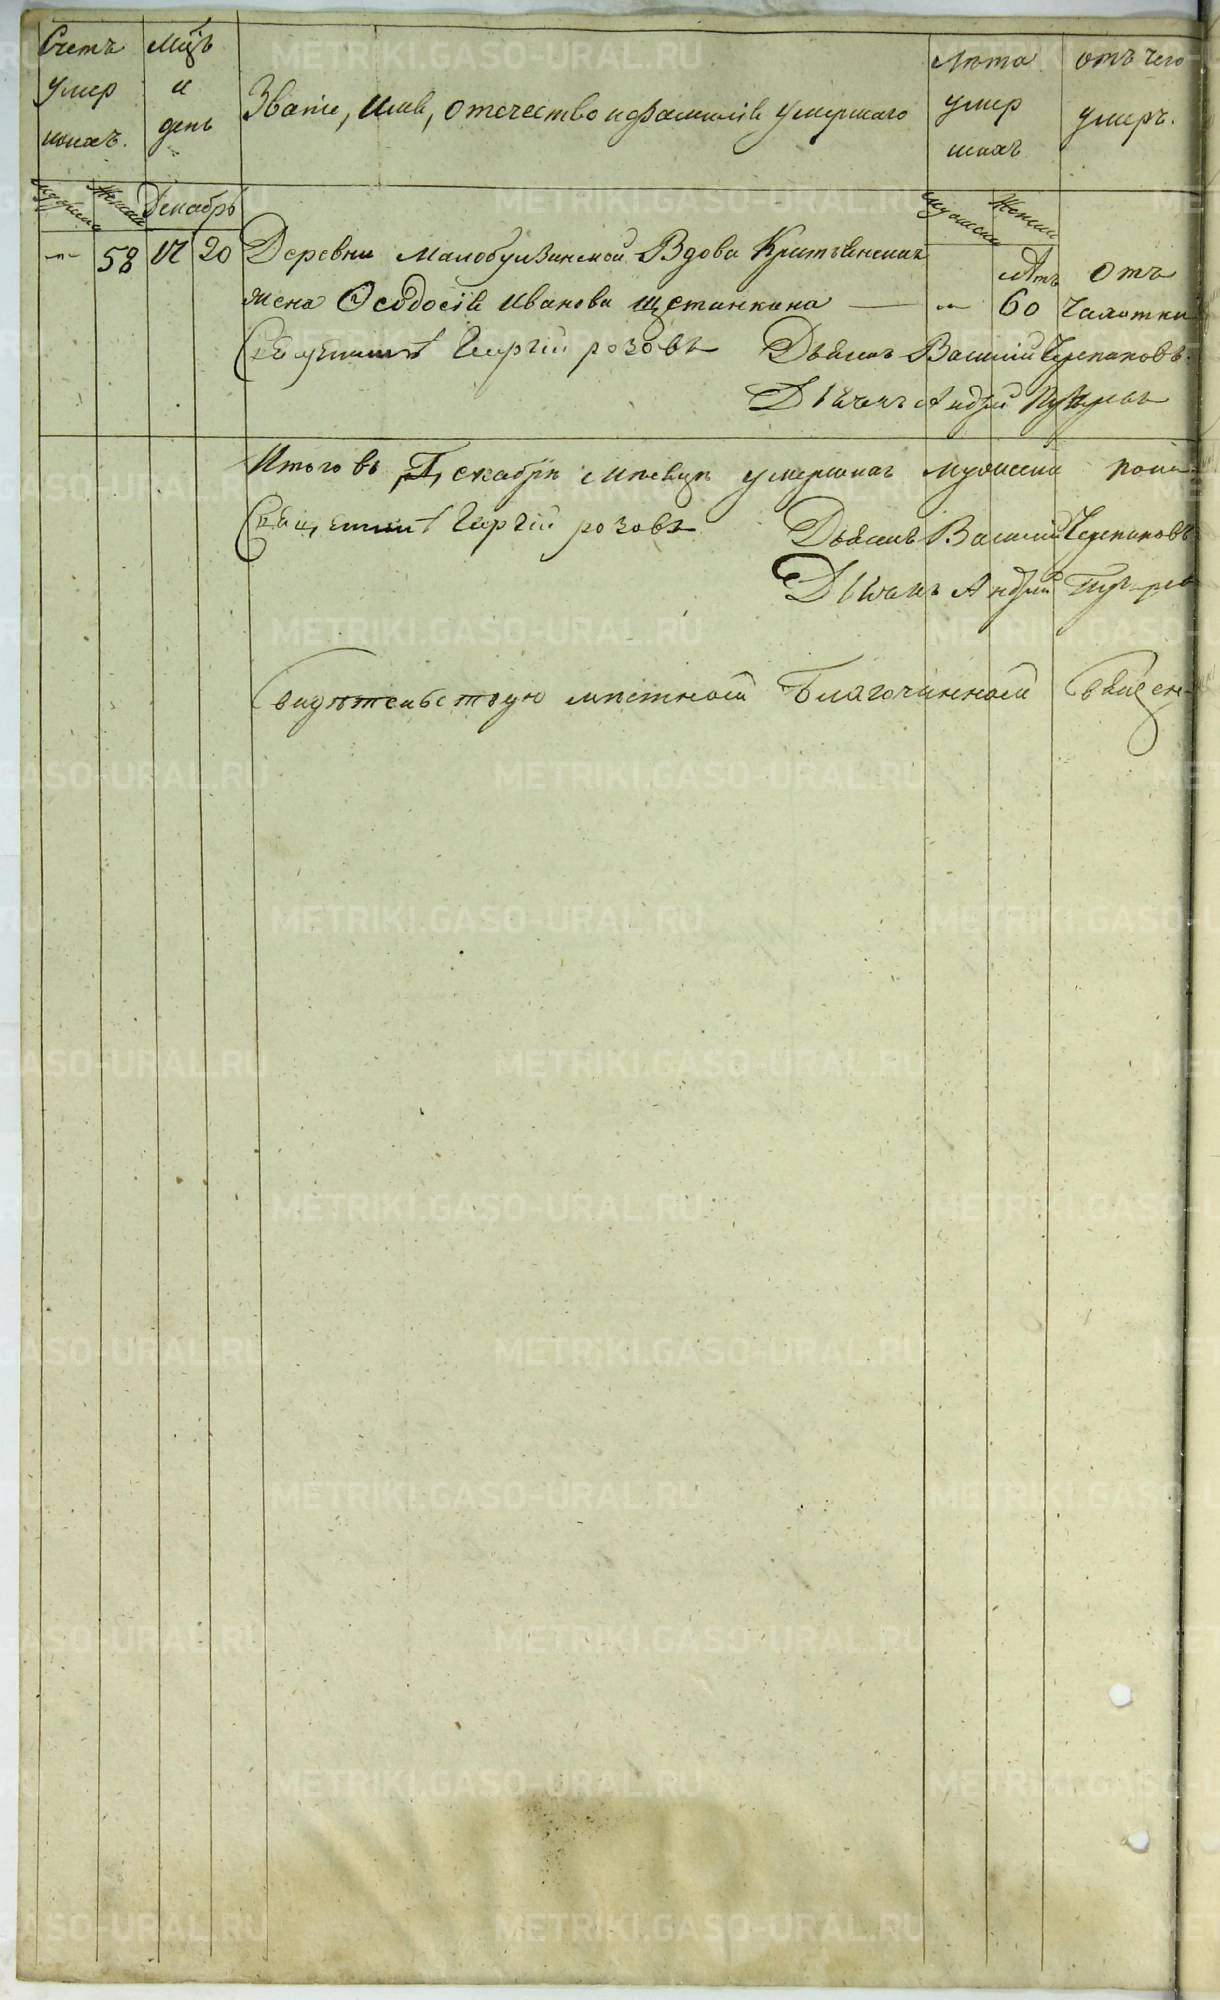 Счетъ
умер
шихъ.
Мцъ
и
день
Званіе, имя, отечество и фамилія умершаго
Лѣта
умер
шихъ
отъ чего
умеръ.
Декабрь
58 17 20 Деревни Малобулзинской Вдова Крестьянская
Лѣтъ отъ
жена Ѳеодосія Иванова Щетинкина — 60 чахотки
Священникъ Георгій Розовъ Дьяконъ Василій Черепановъ.
Дьячекъ Андрей
Итого въ Декабрѣ мѣсяцѣ умершихъ мужеска пола
Священникъ Георгій Розовъ Дьяконъ Василій Черепановъ
Дьячекъ Андрей
Свидѣтельствую мѣстной Благочинной Священ-
METRIKI.GASO-URAL.RU